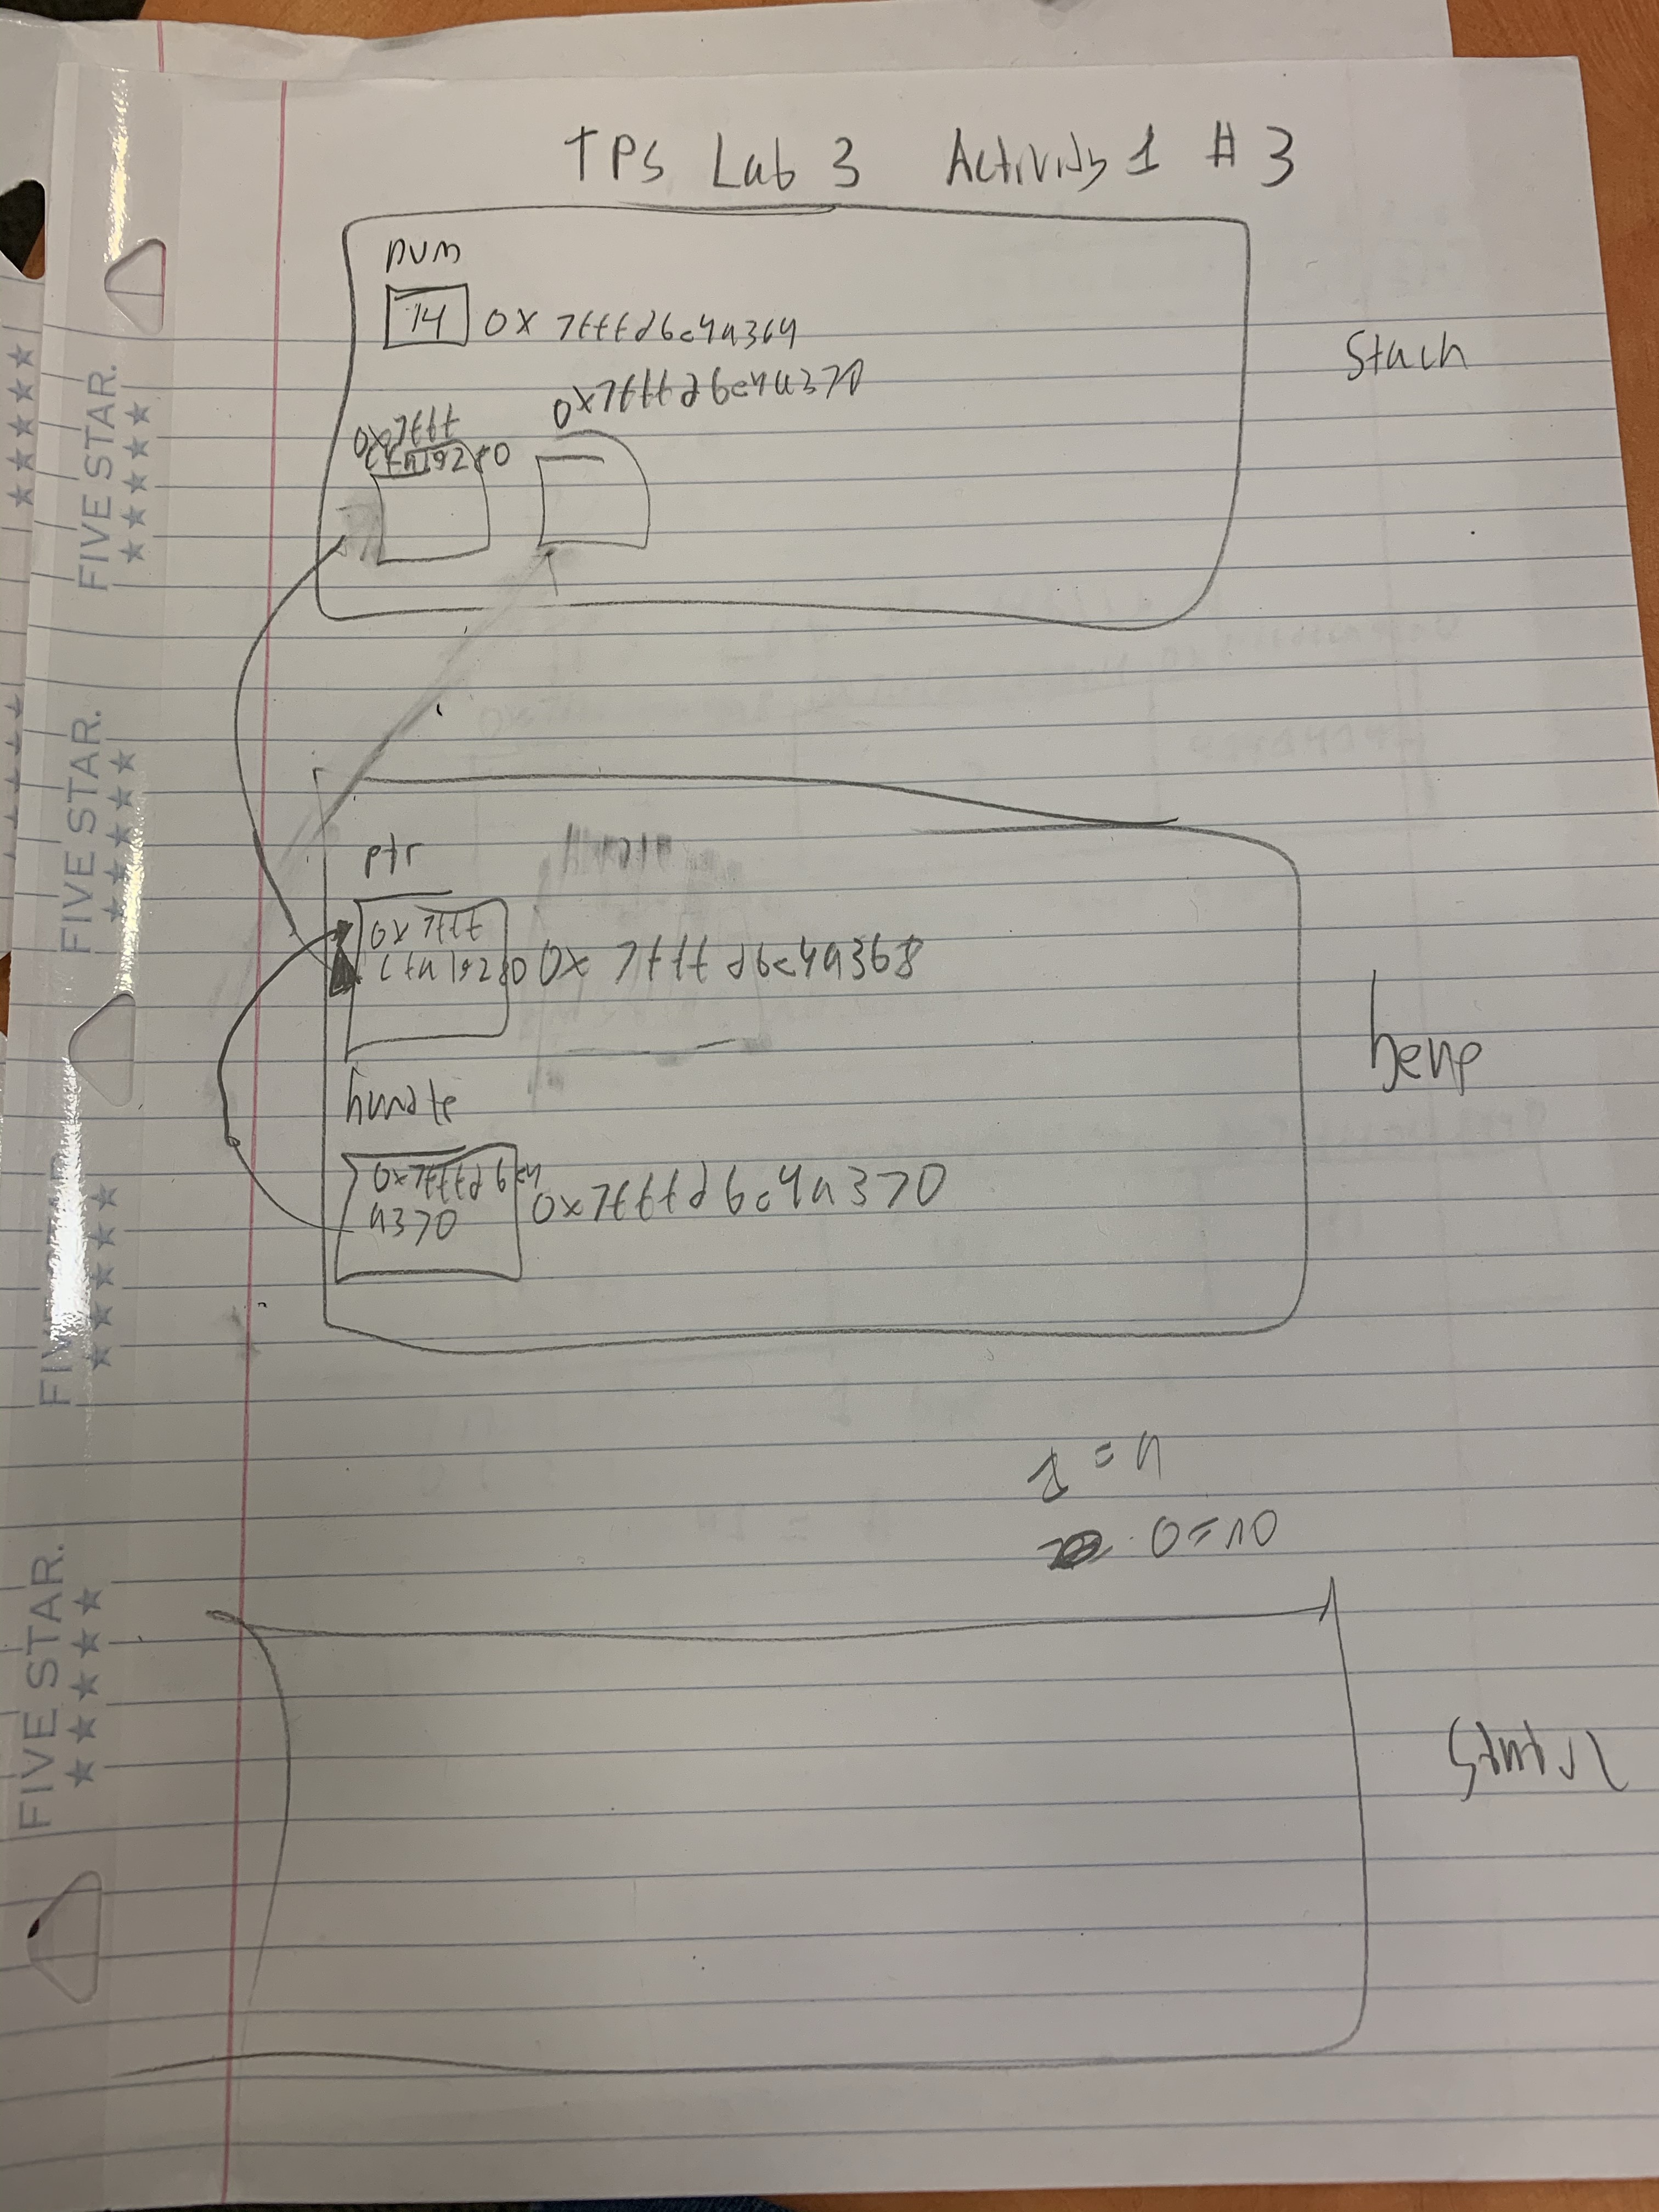 TPS Lab 3 Activity 1 # 3
num
14 0x 7fffd6c4a364
Stack
0x7fffd6c4a370
0x7fff
cfa19280
ptr
0x 7fff
cfa19280 0x 7fffd6c4a368
heap
handle
0x7fffd6c4
a370 0x7fffd6c4a370
1 = 
0=10
Static
FIVE STAR.
FIVE STAR.
FIVE STAR.
FIVE STAR.